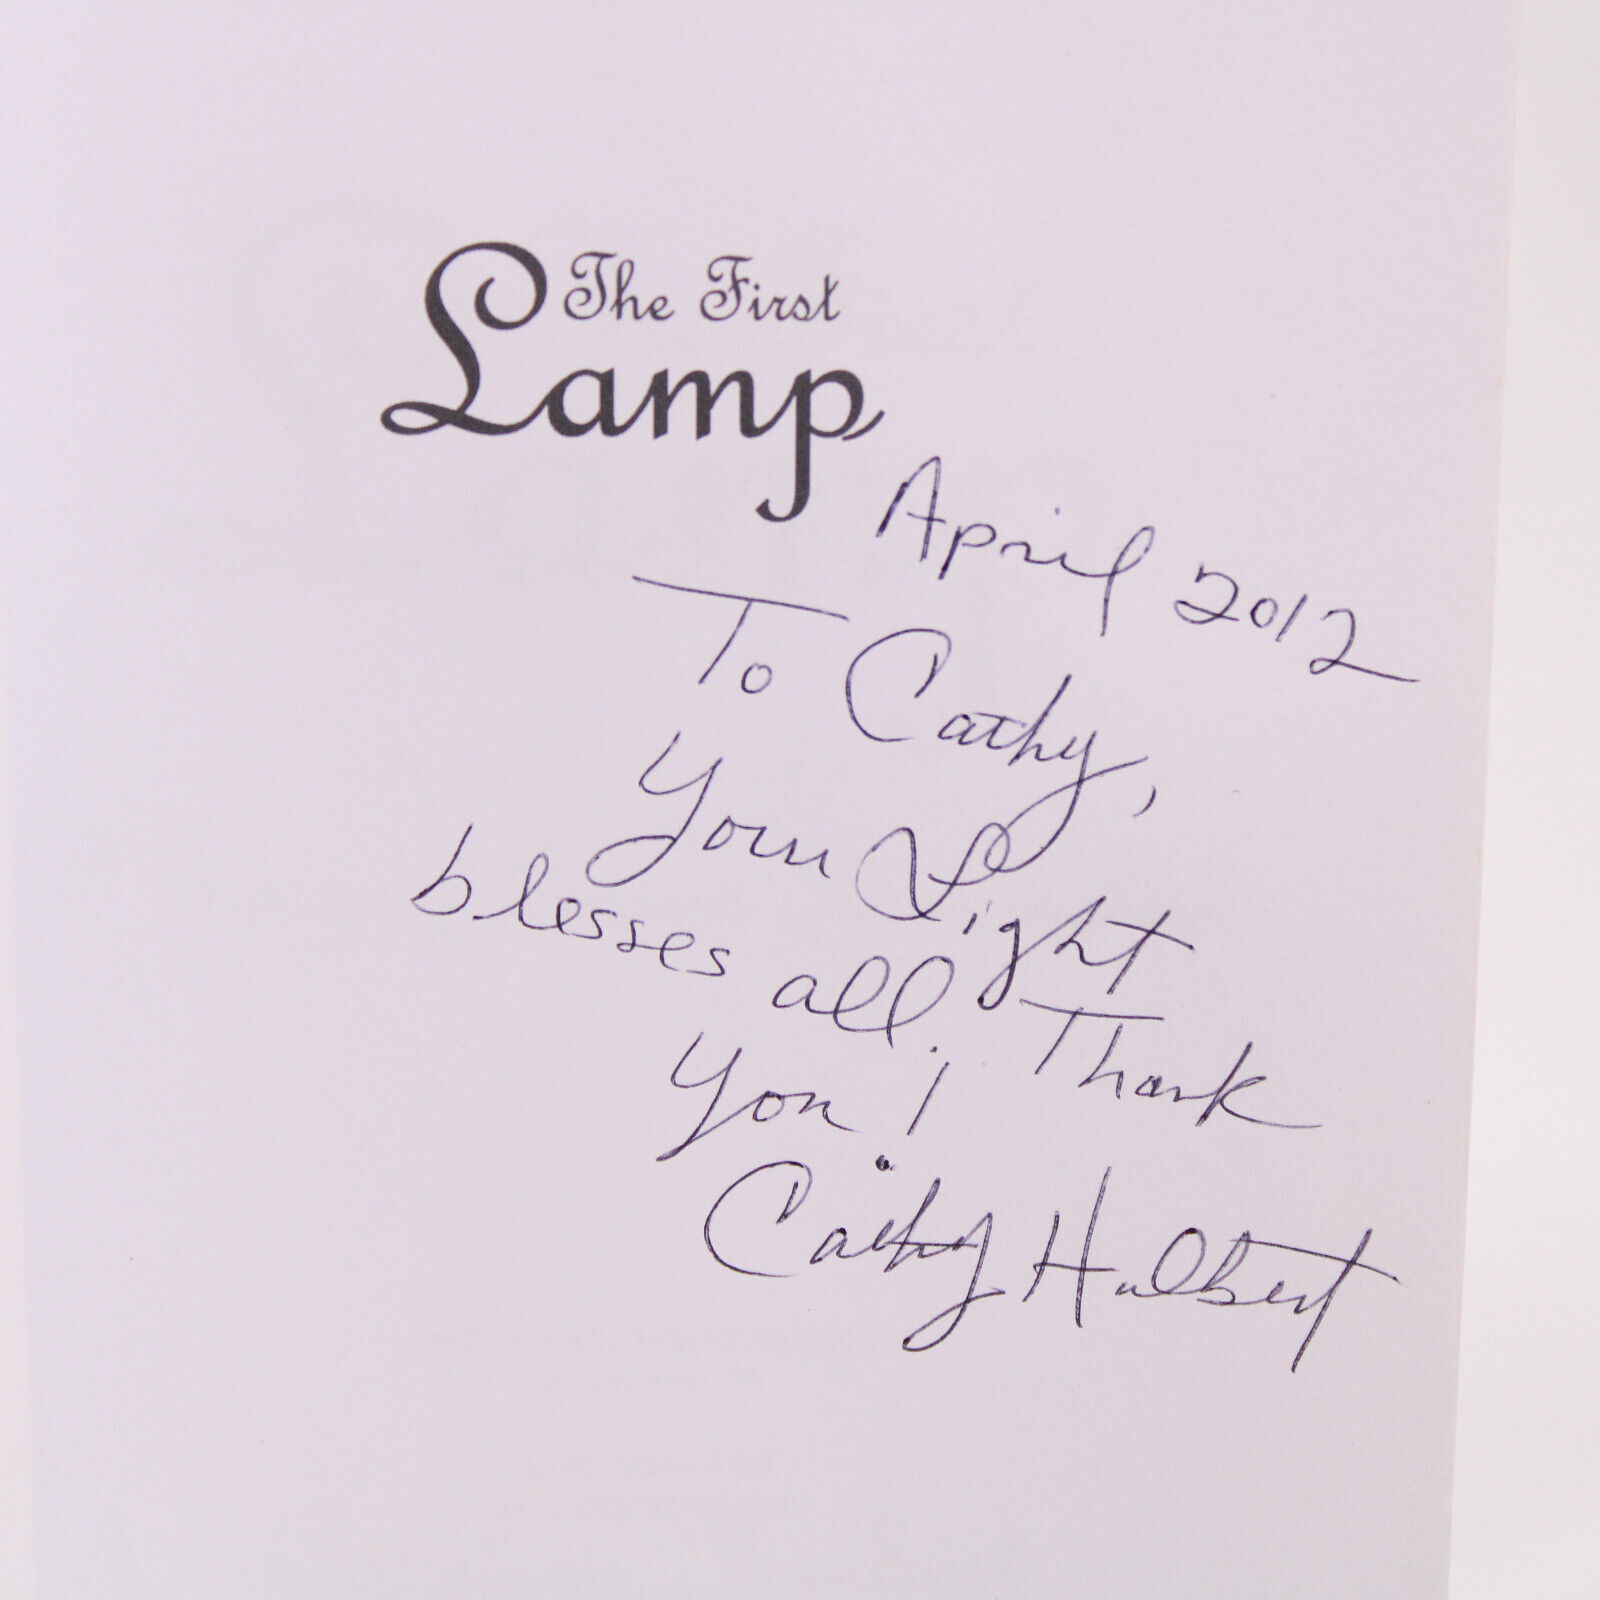 The First
Lamp
April 2012
To Cathy,
Your Light
blesses all. Thank
You!
Cathy Hulbert